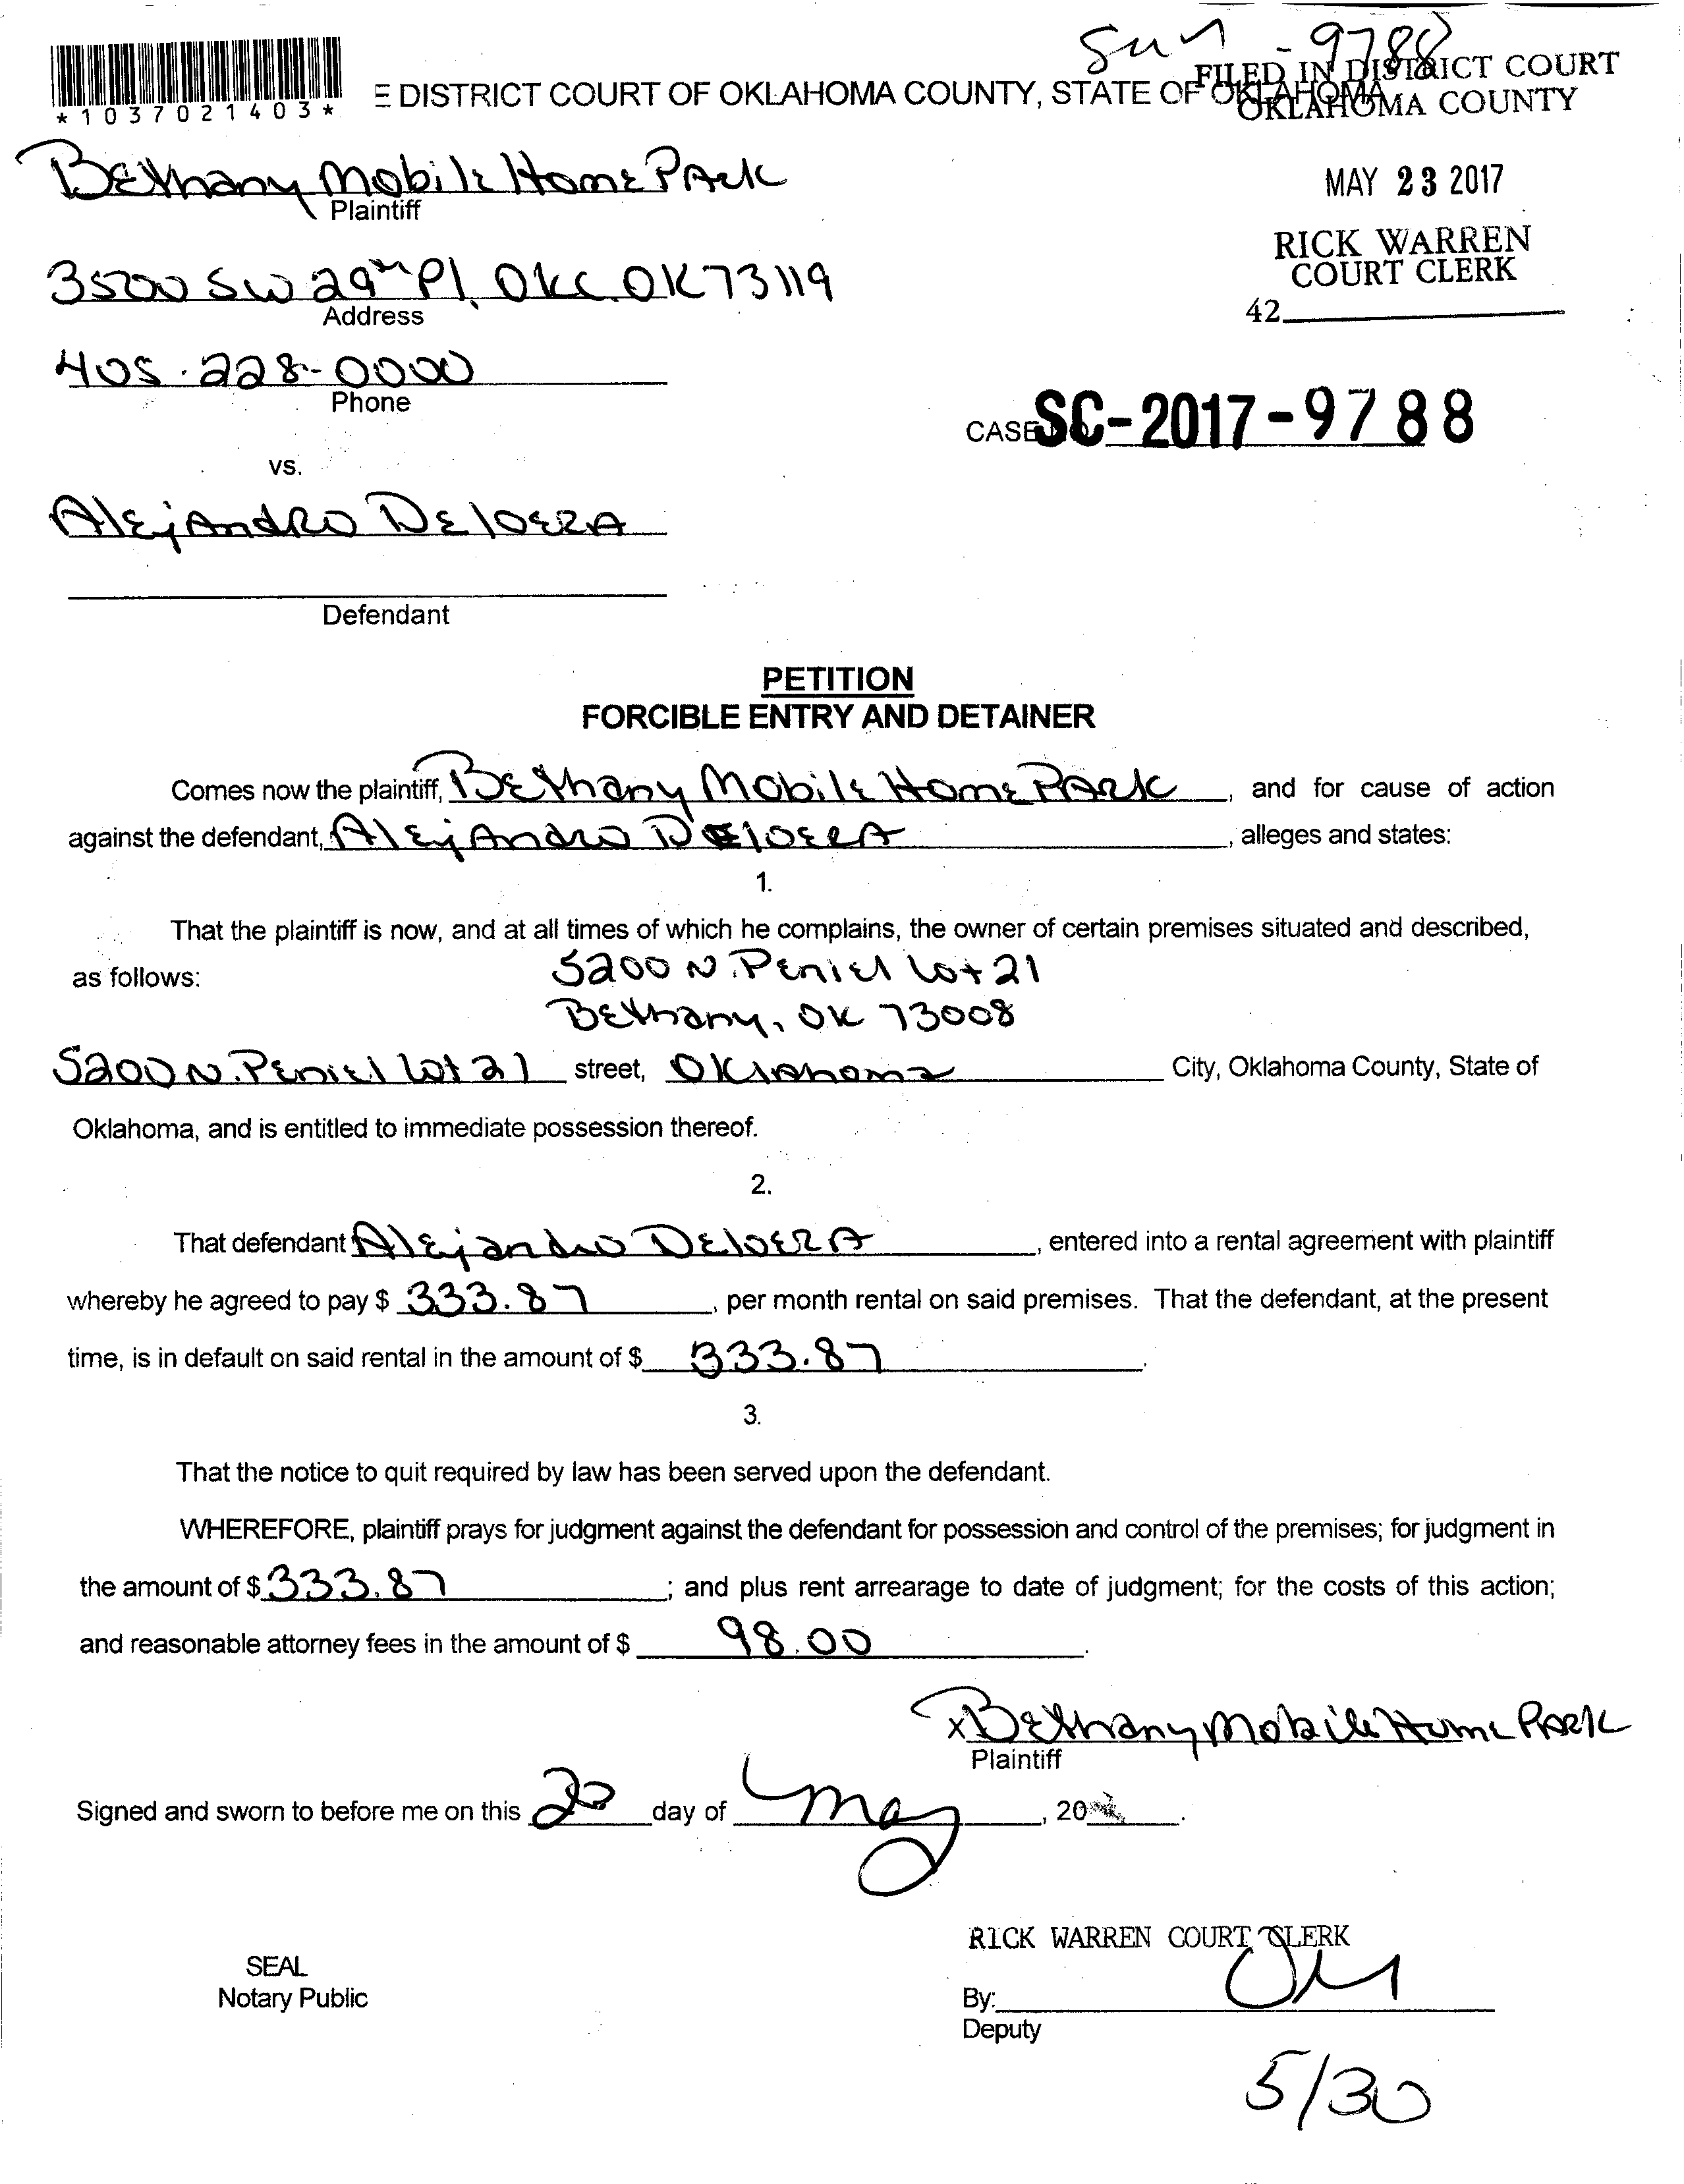 - 9788
FILED IN DISTRICT COURT
OKLAHOMA COUNTY
*1037021403*
E DISTRICT COURT OF OKLAHOMA COUNTY, STATE OF OKLAHOMA
Bethany Mobile Home Park
Plaintiff
MAY 23 2017
RICK WARREN
COURT CLERK
42
3500 SW 29th Pl. OKC OK 73119
Address
405.228-0000
Phone
CASE SC-2017-9788
vs.
Alejandro Deloera
Defendant
PETITION
FORCIBLE ENTRY AND DETAINER
Comes now the plaintiff, Bethany Mobile Home Park, and for cause of action
against the defendant, Alejandro Deloera, alleges and states:
1.
That the plaintiff is now, and at all times of which he complains, the owner of certain premises situated and described,
as follows: 5200 N. Peniel Lot 21
Bethany, OK 73008
5200 N. Peniel Lot 21 street, Oklahoma City, Oklahoma County, State of
Oklahoma, and is entitled to immediate possession thereof.
2.
That defendant Alejandro Deloera, entered into a rental agreement with plaintiff
whereby he agreed to pay $ 333.87, per month rental on said premises. That the defendant, at the present
time, is in default on said rental in the amount of $ 333.87.
3.
That the notice to quit required by law has been served upon the defendant.
WHEREFORE, plaintiff prays for judgment against the defendant for possession and control of the premises; for judgment in
the amount of $ 333.87; and plus rent arrearage to date of judgment; for the costs of this action;
and reasonable attorney fees in the amount of $ 98.00.
x Bethany Mobile Home Park
Plaintiff
Signed and sworn to before me on this day of May, 20.
RICK WARREN COURT CLERK
SEAL
Notary Public
By:
Deputy
5/30